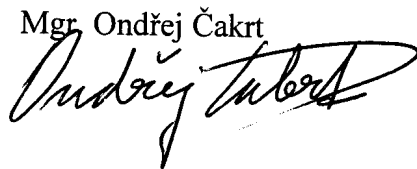 Mgr. Ondřej Čakrt
Ondřej Čakrt